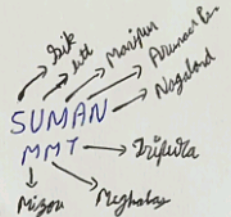 Sik
utt
Manipur
Arunachal Pr.
Nagaland
SUMAN
MMT
Tripura
Mizou
Meghalay